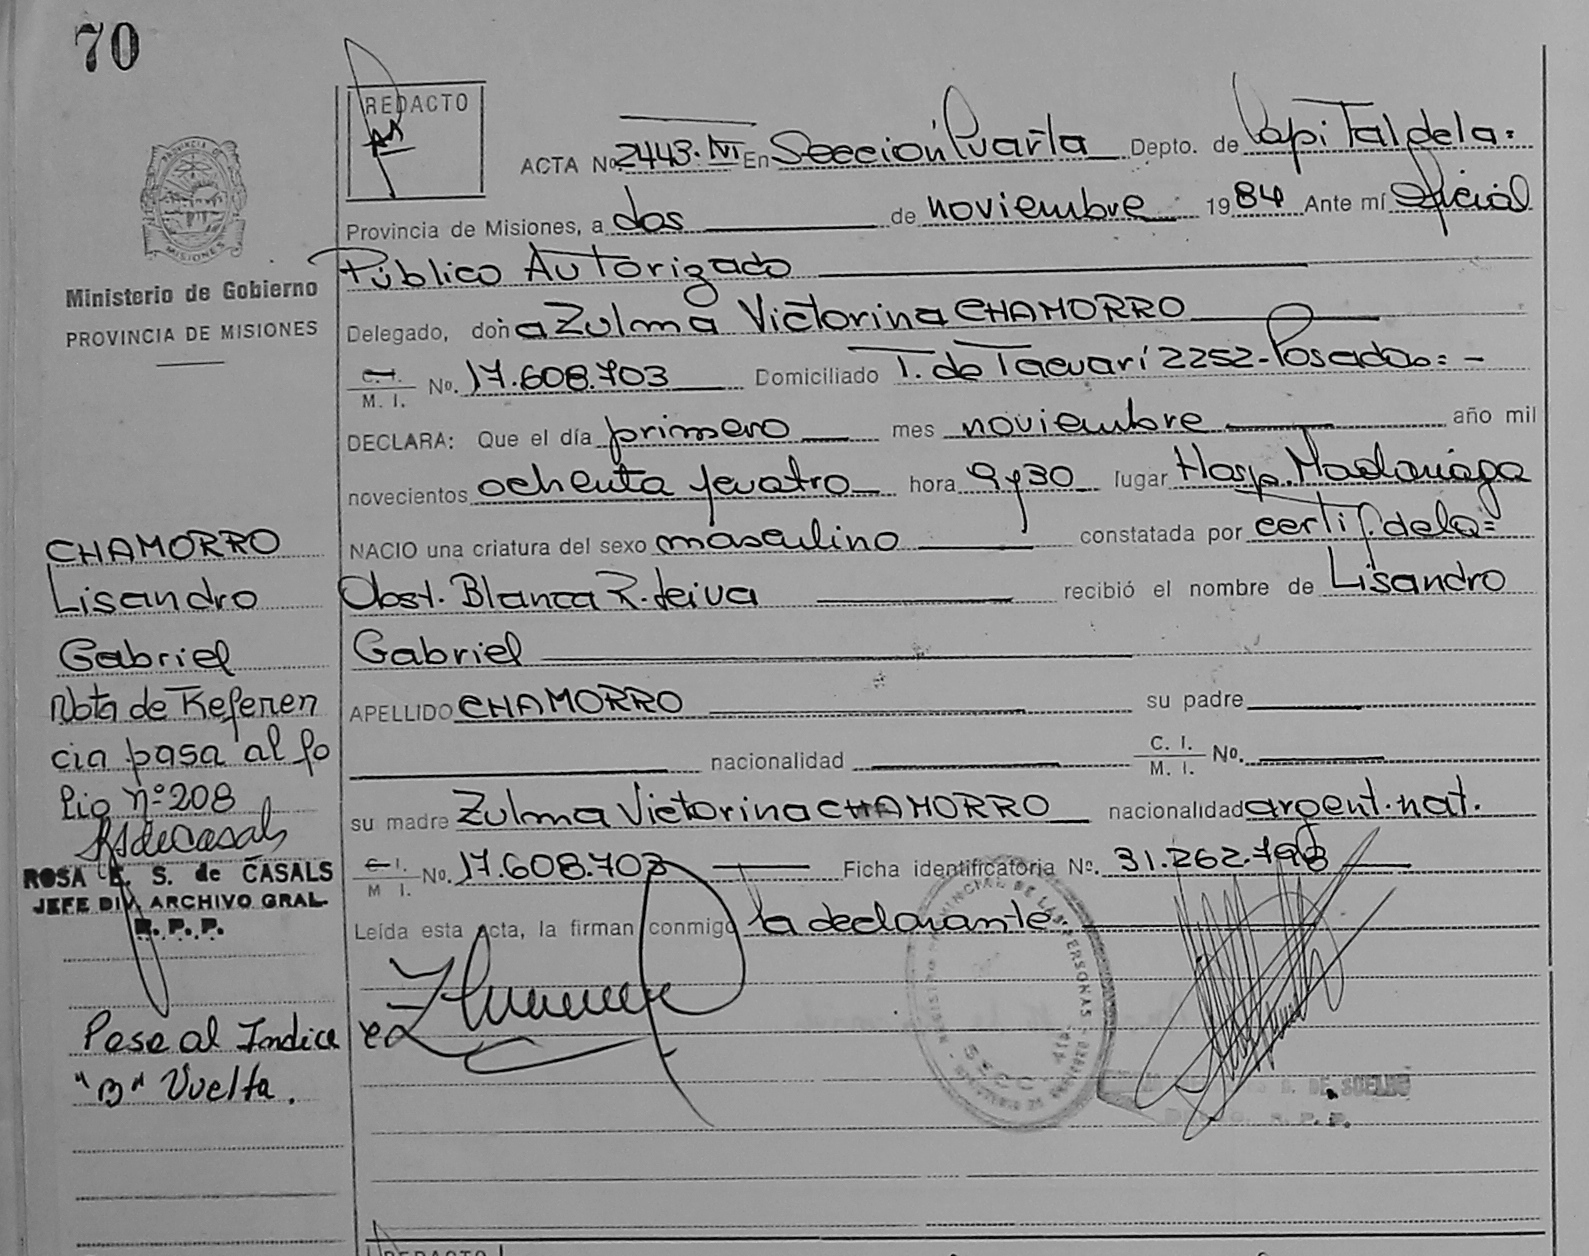 70
REDACTO
ACTA No. 2443. En Sección Cuarta Depto. de Capital de la=
Provincia de Misiones, a dos de noviembre 1984 Ante mí Oficial
Público Autorizado
Delegado, doña Zulma Victorina CHAMORRO
C. I. M. I. No. 17.608.703 Domiciliado T. de Tacuarí 2252-Posadas=-
DECLARA: Que el día primero mes noviembre año mil
novecientos ochenta y cuatro hora 9y30 lugar Hosp. Madariaga
NACIO una criatura del sexo masculino constatada por certif. de la=
Obst. Blanca R. Leiva recibió el nombre de Lisandro
Gabriel
APELLIDO CHAMORRO su padre
nacionalidad C. I. M. I. No.
su madre Zulma Victorina CHAMORRO nacionalidad argent. nat.
C. I. M. I. No. 17.608.703 Ficha identificatoria No. 31.262.793
Leída esta acta, la firman conmigo la declarante.
PROVINCIA DE MISIONES
Ministerio de Gobierno
PROVINCIA DE MISIONES
CHAMORRO
Lisandro
Gabriel
Nota de Referen
cia pasa al fo
lio nº 208
RSdeCasals
ROSA E. S. de CASALS
JEFE DIV. ARCHIVO GRAL.
R. P. P.
Pase al Indice
"B" Vuelta.
PROVINCIAL DE LAS PERSONAS
SECC. 4ta
DE SOELHO
R. P. P.
REDACTO